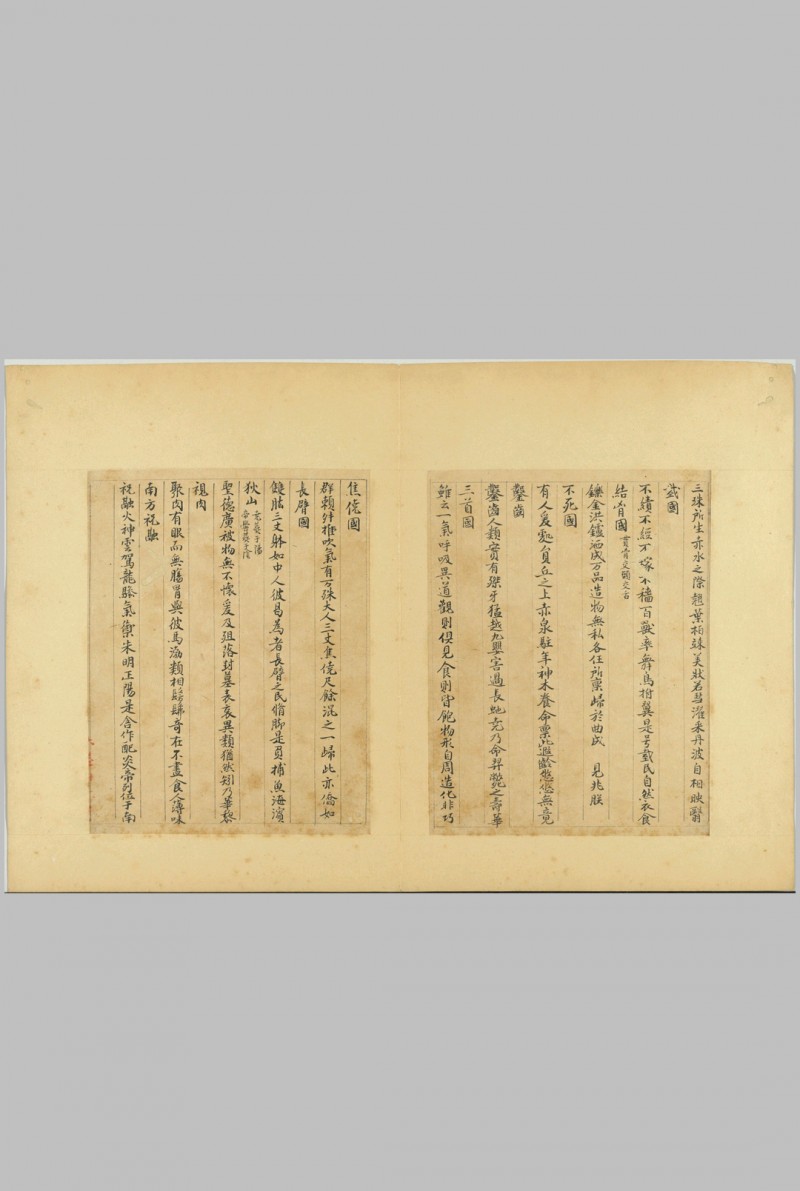 三珠所生赤水之際翹葉柏竦美狀若彗濯采丹波自相映翳
臷國
不績不經不嫁不穡百獸率舞鳥拊翼是号臷民自然衣食
結胷國 貫胷交頸交舌
鑠金洪鑪洒成万品造物無私各任所稟歸於曲成 見兆朕
不死國
有人爰處員丘之上赤泉駐年神木養命稟此遐齡悠悠無竟
鑿齒
鑿齒人類實有傑牙猛越九嬰害過長虵堯乃命羿斃之壽華
三首國
雖云一氣呼吸異道觀則俱見食則皆飽物形自周造化非巧
焦僥國
群籟舛推吹氣有万殊大人三丈焦僥尺餘混之一歸此亦僑如
長臂國
雙肱三丈體如中人彼曷為者長臂之民脩脚是負捕魚海濱
狄山 堯葬于陽 帝嚳葬于陰
聖德廣被物無不懷爰及殂落封墓表哀異類猶然矧乃華黎
視肉
聚肉有眼而無膓胃與彼馬㔟類相髣髴奇在不盡食人薄味
南方祝融
祝融火神雲駕龍驂氣禦朱明正陽是含作配炎帝列位于南